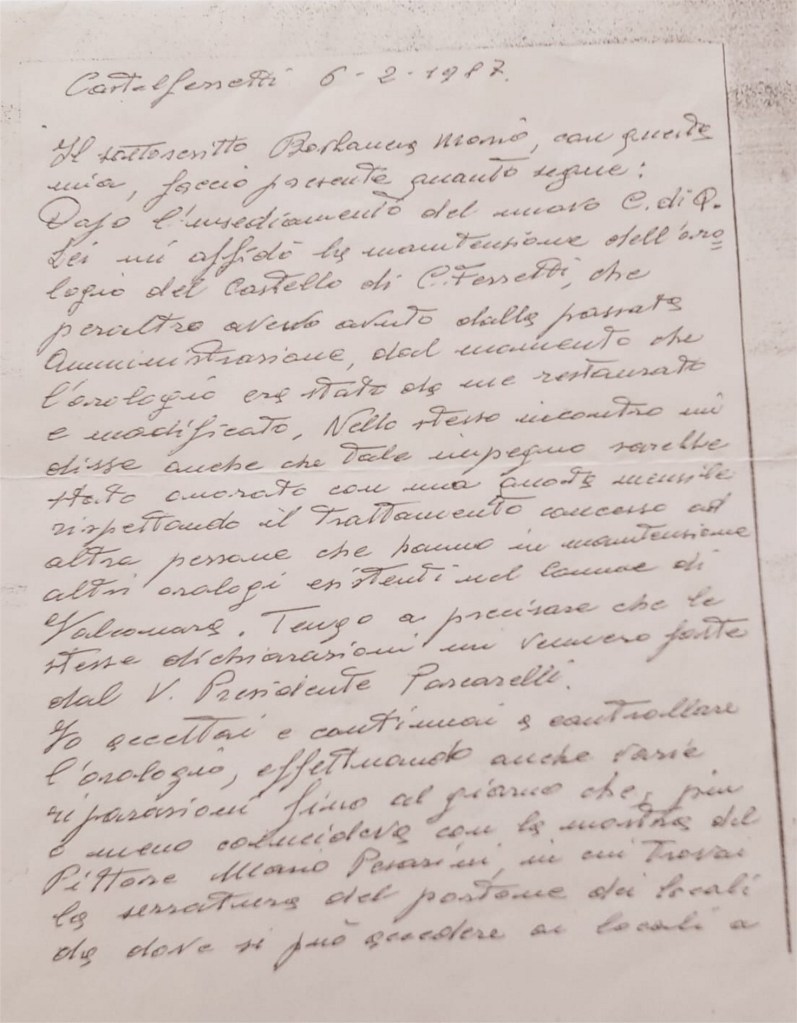 Castelferretti 6-2-1987.
Il sottoscritto Mario, con questa
mia, faccio presente quanto segue:
Dopo l'insediamento del nuovo C. di Q.
Lei mi affidò la manutensione dell'oro=
logio del Castello di C. Ferretti, che
peraltro avevo avuto dalla passata
Amministrasione, dal momento che
l'orologio era stato da me restaurato
e modificato. Nello stesso incontro mi
disse anche che tale impegno sarebbe
stato onorato con una quota mensile
rispettando il trattamento concesso ad
altre persone che hanno in manutensione
altri orologi esistenti nel Comune di
Falconara. Tengo a precisare che le
stesse dichiarazioni mi vennero fatte
dal V. Presidente Pascarelli.
Io accettai e continuai a controllare
l'orologio, effettuando anche varie
riparasioni fino al giorno che, più
o meno coincideva con la mostra del
Pittore Mario Pesarini, in cui trovai
la serratura del portone dei locali
da dove si può accedere ai locali a